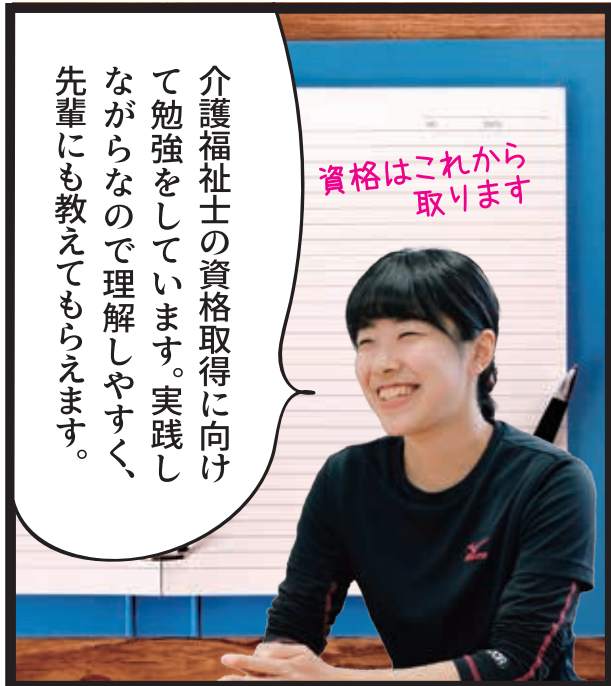 介護福祉士の資格取得に向け
て勉強をしています。実践し
ながらなので理解しやすく、
先輩にも教えてもらえます。
資格はこれから
取ります